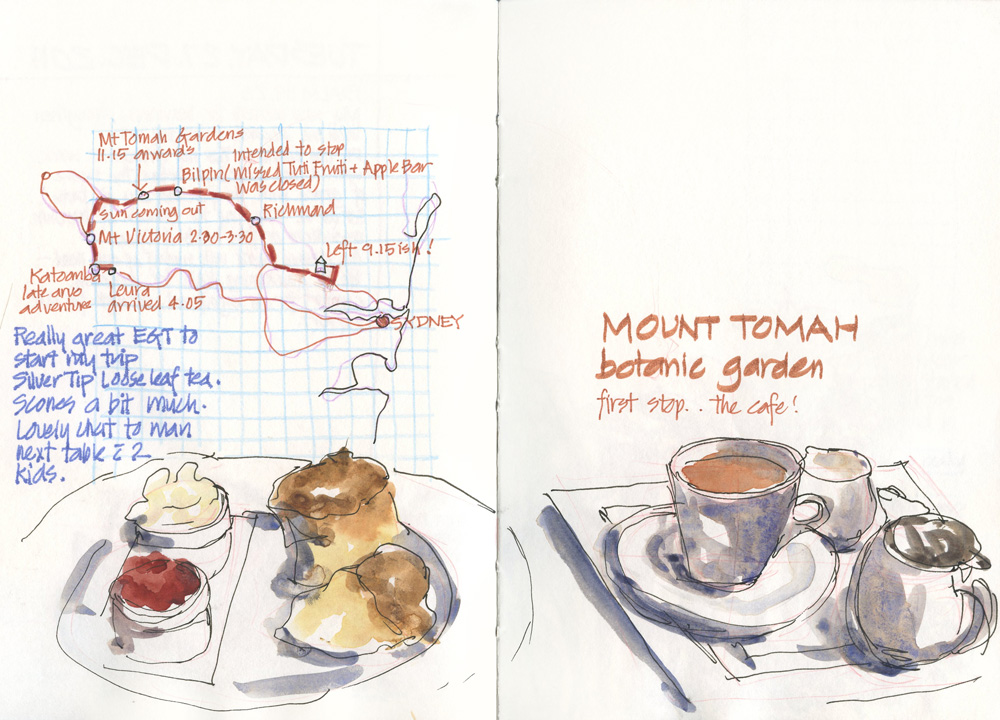 Mt Tomah Gardens
11.15 onwards
Intended to stop
Bilpin (missed Tutti Fruiti + Apple Bar
was closed)
Sun coming out
Richmond
Mt Victoria 2.30-3.30
Left 9.15ish!
Katoomba
late arvo
adventure
Leura
arrived 4.05
SYDNEY
Really great E&T to
start my trip
Silver Tip Loose leaf tea.
Scones a bit much.
Lovely chat to man
next table c̄ 2
kids.
MOUNT TOMAH
botanic garden
first stop.. the cafe!